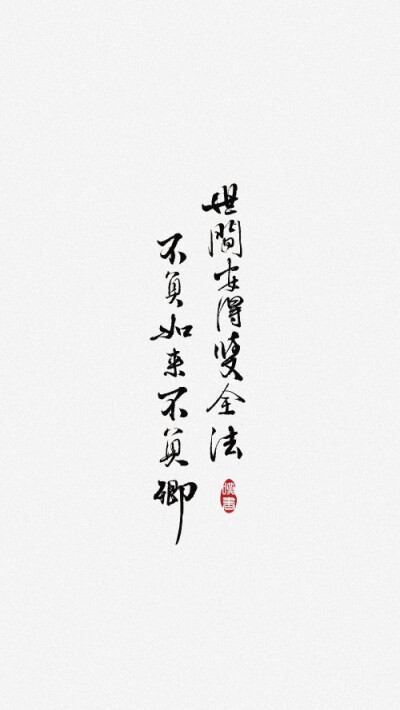 世間安得雙全法
不負如來不負卿